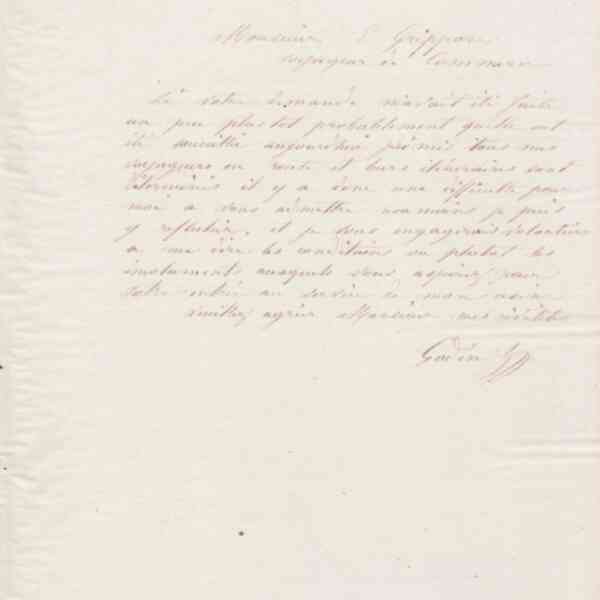 Monsieur E Grippon
voyageur de Commerce
Si votre demande m'avait été faite
un peu plus tot probablement qu'elle eut
été accueillie aujourd'hui j'ai mis tous mes
voyageurs en route et leurs itinéraires sont
déterminés il y a donc une difficulté pour
moi à vous admettre néanmoins je puis
y réfléchir, et je vous engagerais volontiers
à me dire les conditions ou plutot les
émoluments auxquels vous aspirez pour
votre entrée au service de mon usine
Veuillez agréer Monsieur mes civilités
Godin